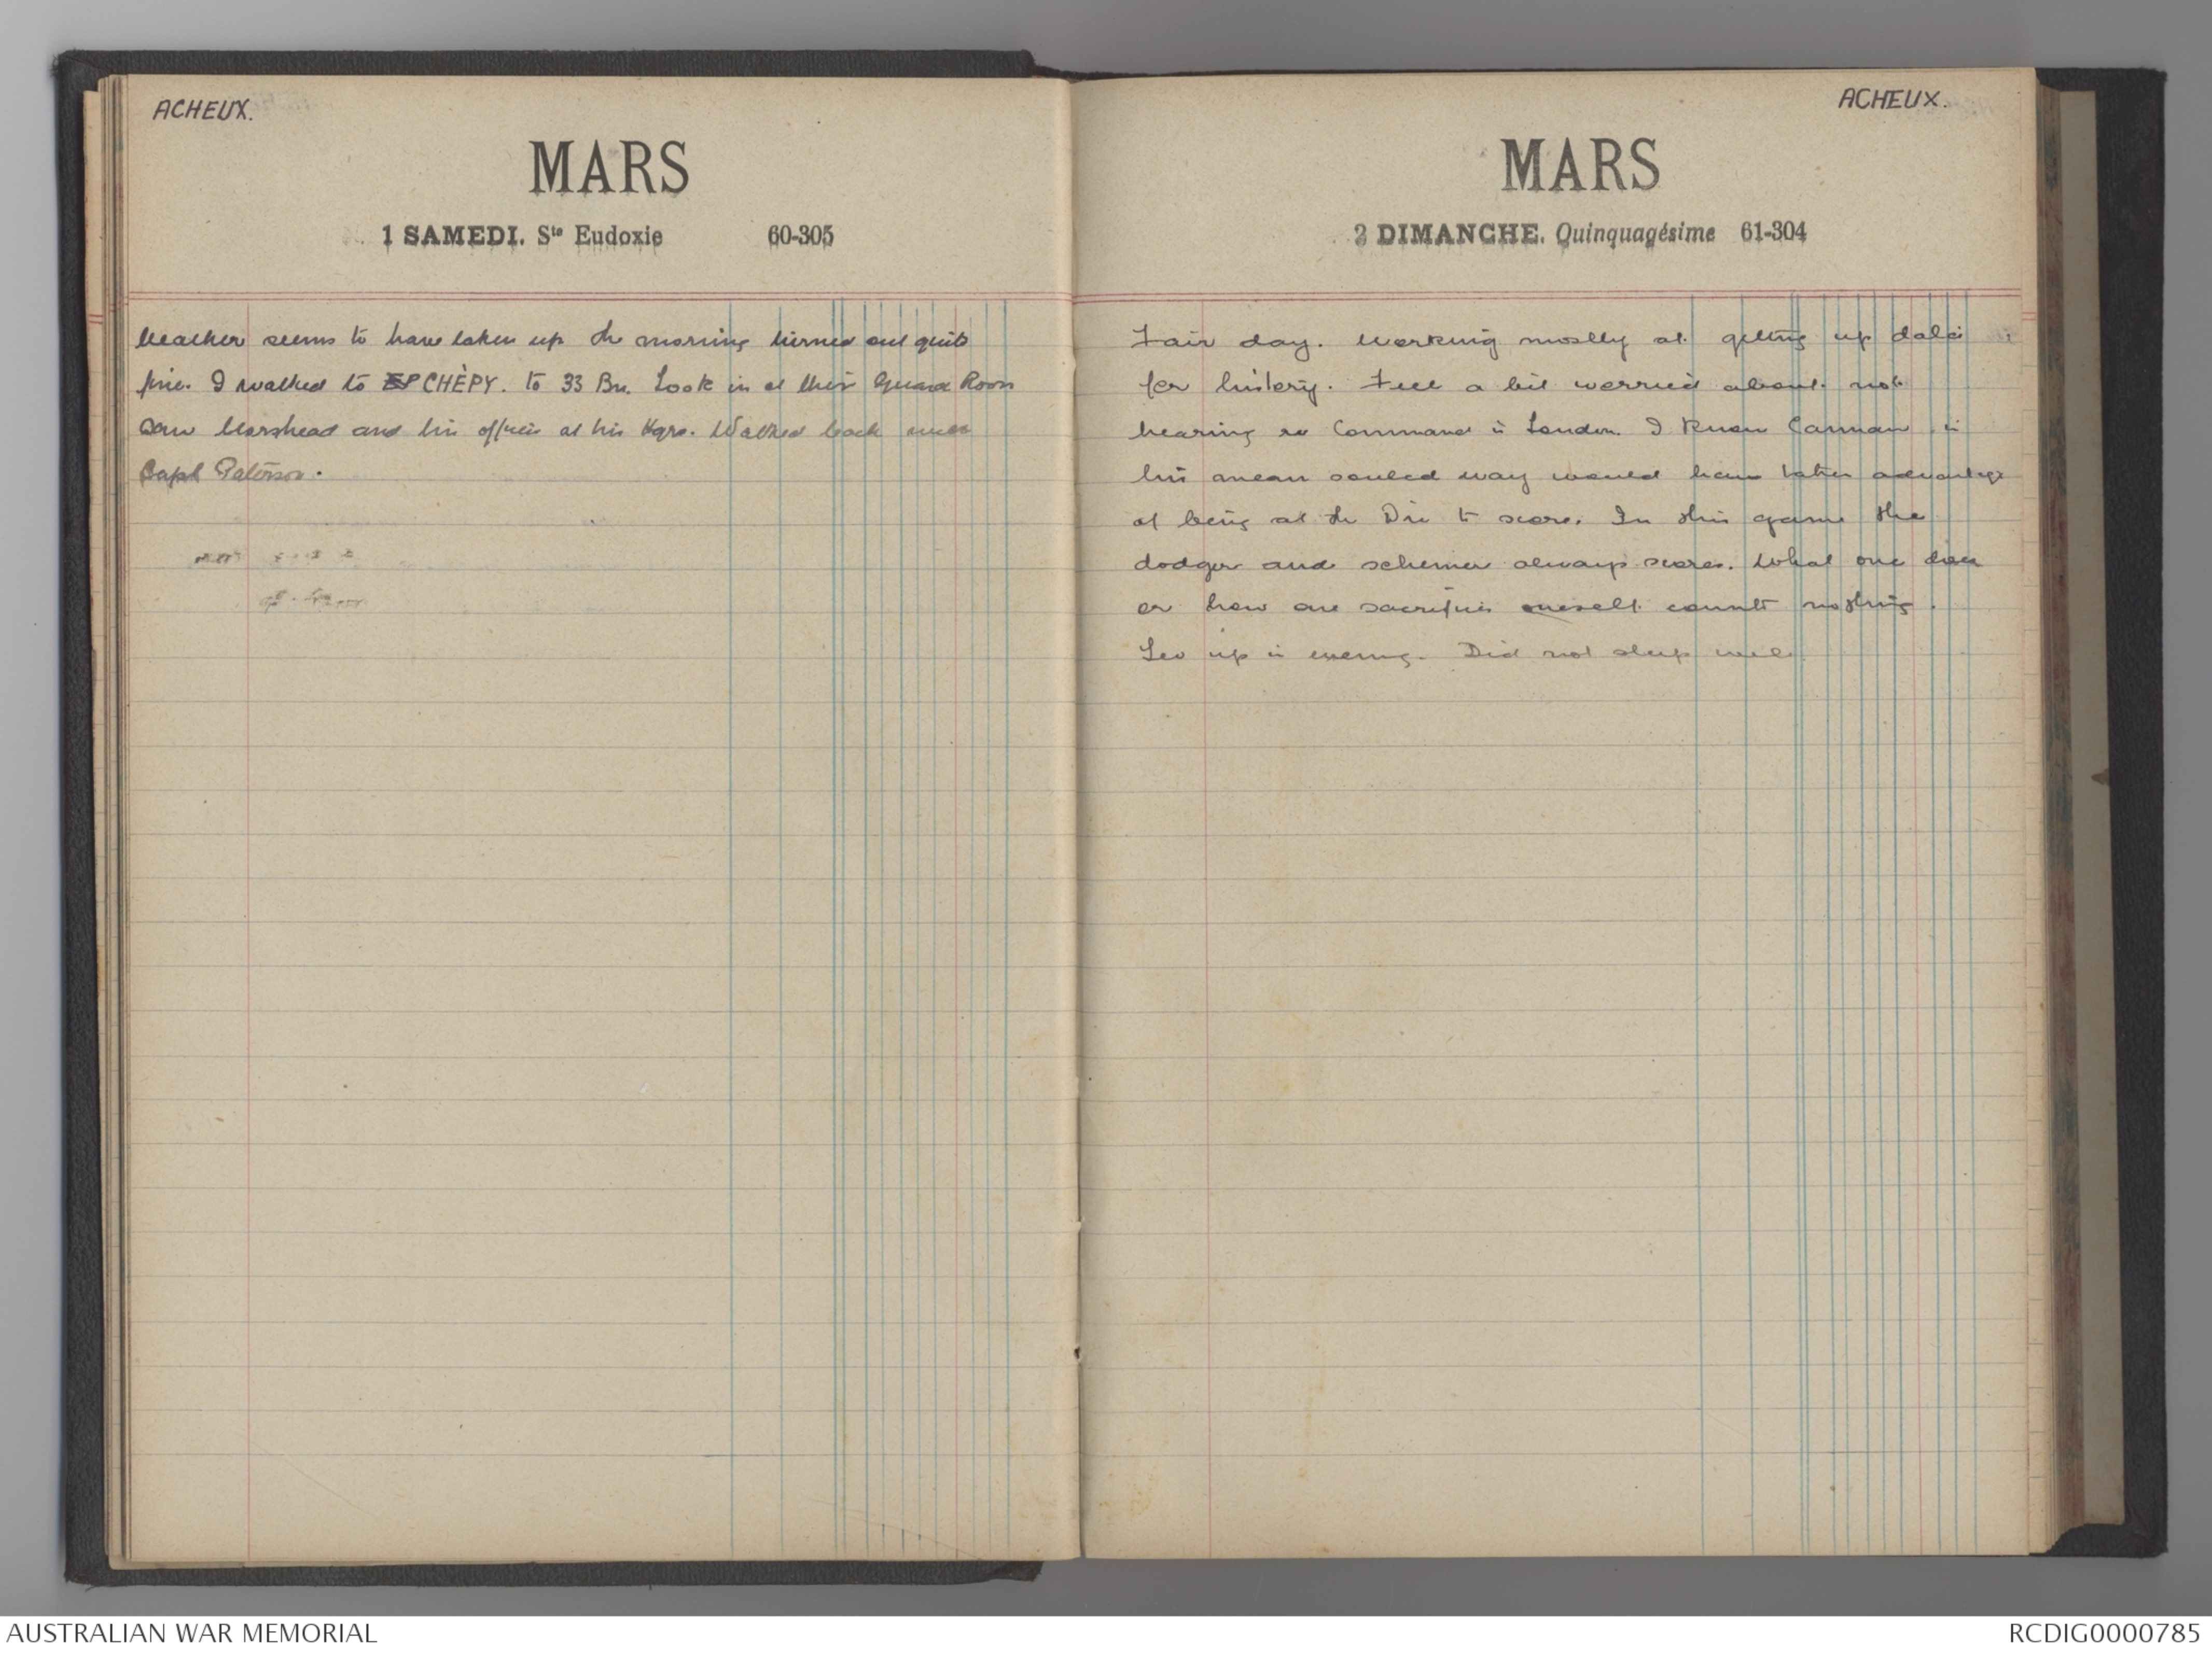 ACHEUX.
MARS
1 SAMEDI. Ste Eudoxie 60-305
Weather seems to have taken up the morning turned out quite
fine. I walked to CHÈPY. to 33 Bn. Look in at their Guard Room
Saw Morshead and his officers at his Hqrs. Walked back
Capt Paterson.
ACHEUX.
MARS
2 DIMANCHE. Quinquagésime 61-304
Fair day. Working mostly at getting up data
for history. Feel a bit worried about not
hearing re Command in London. I know Cannan in
his mean souled way would have taken advantage
of being at the Div to score. In this game the
dodger and schemer always scores. What one does
or how one sacrifices oneself counts nothing.
Leo up in evening. Did not sleep well
AUSTRALIAN WAR MEMORIAL
RCDIG0000785